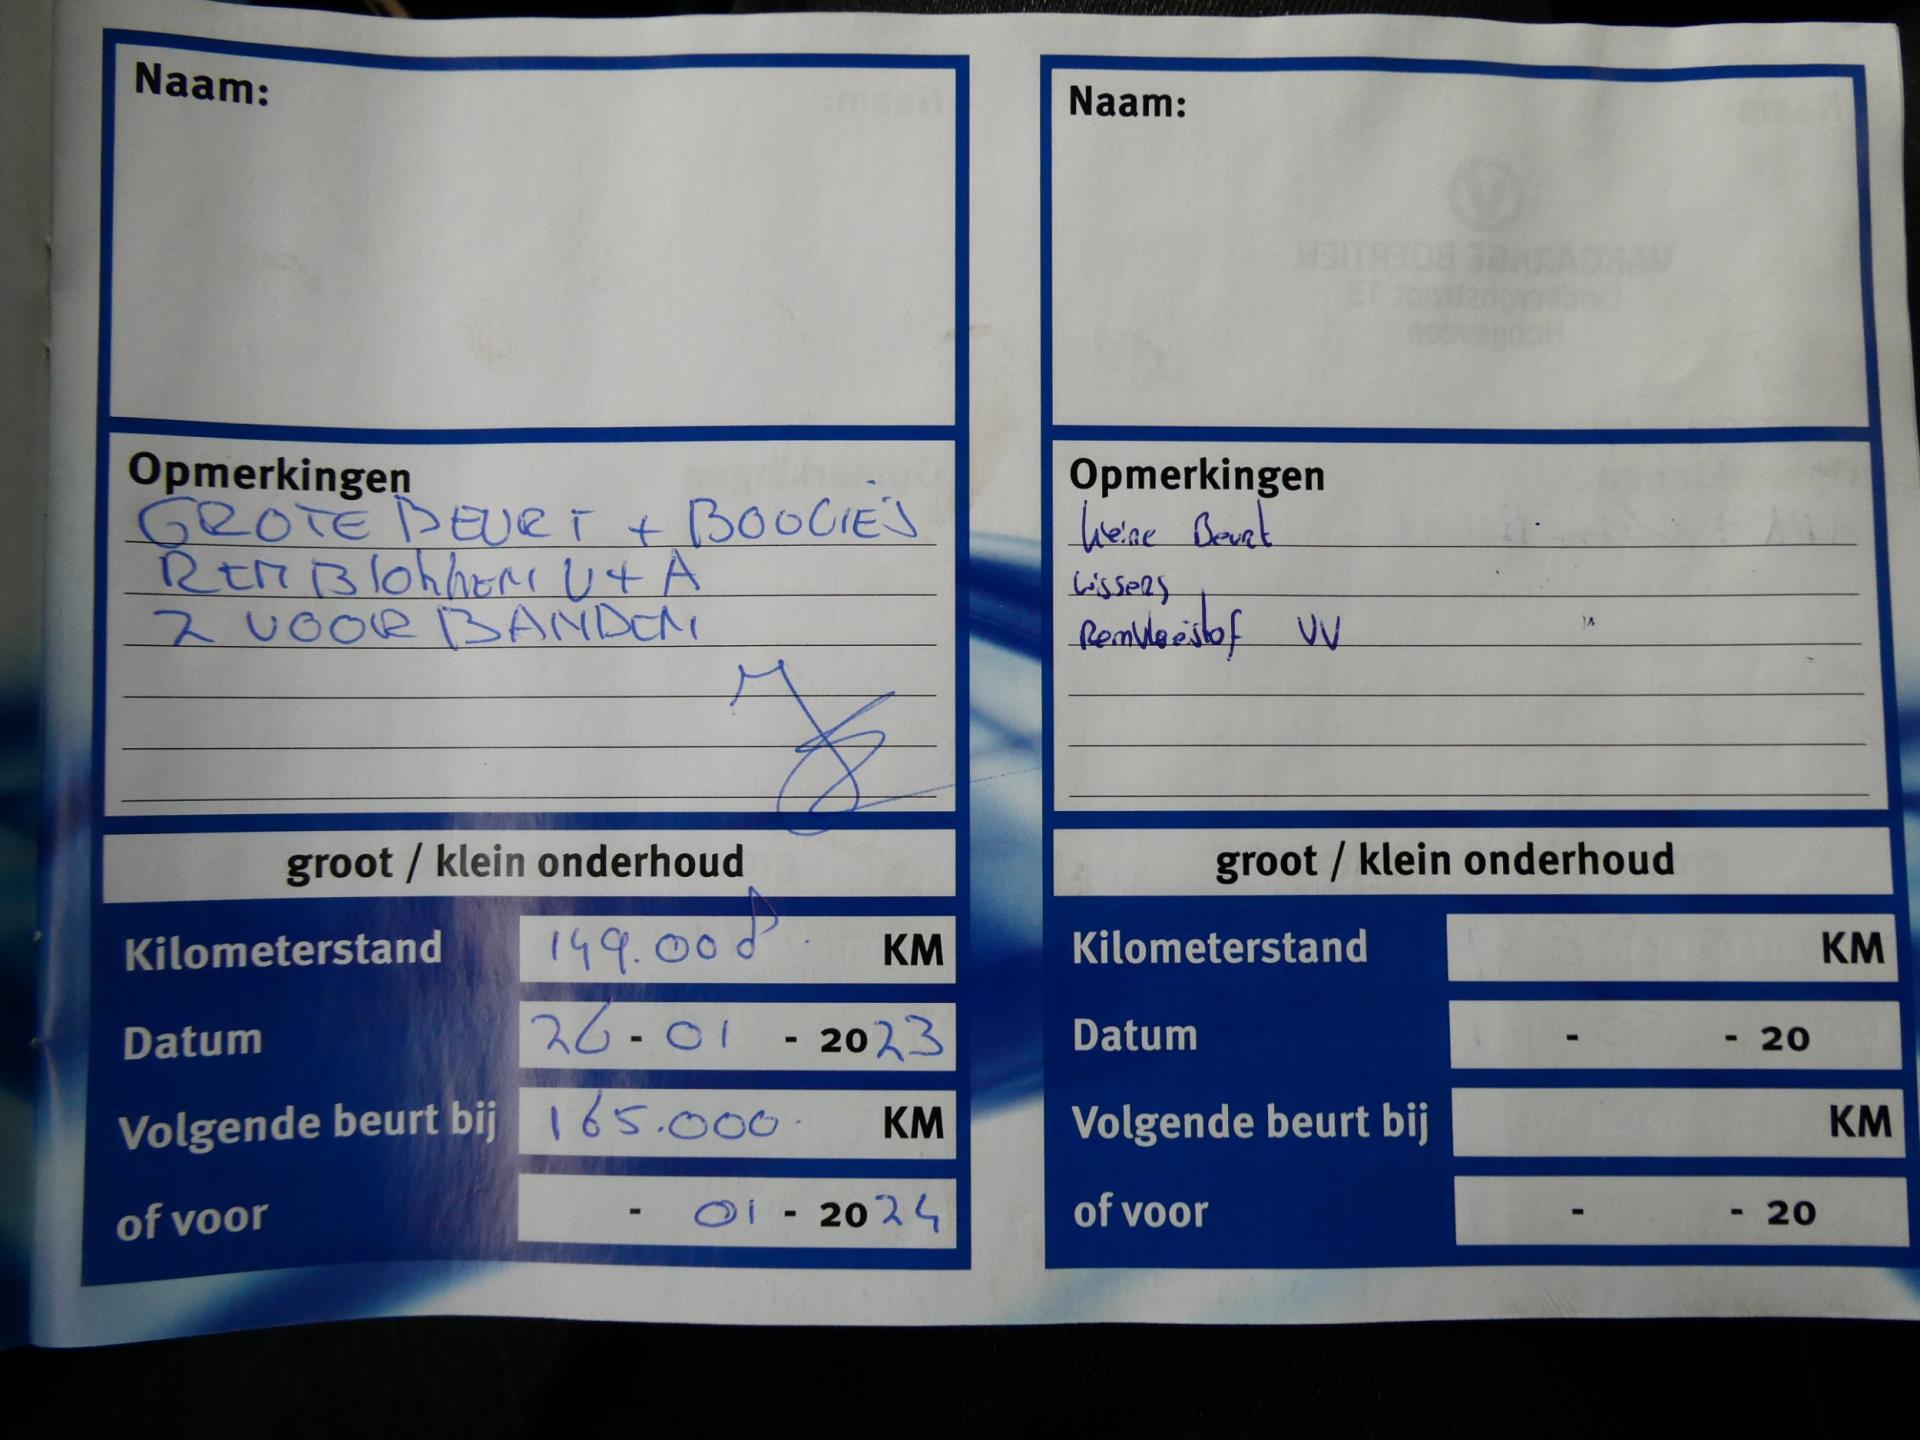 Naam:
Opmerkingen
GROTE BEURT + BOUGIE'S
REMBlokkEN V + A
2 VOOR BANDEN
groot / klein onderhoud
Kilometerstand 149.000 KM
Datum 26 - 01 - 2023
Volgende beurt bij 165.000 KM
of voor - 01 - 2024
Naam:
VAKGARAGE BOERTIEN
Lindberghstraat 13
Hoogeveen
Opmerkingen
kleine Beurt
wissers
Remvloeistof VV
groot / klein onderhoud
Kilometerstand KM
Datum - - 20
Volgende beurt bij KM
of voor - - 20